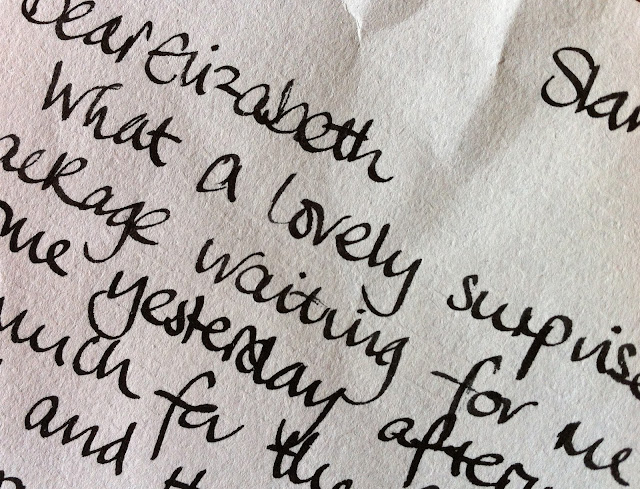 Dear Elizabeth
What a lovely surprise
package waiting for me
yesterday after
much for the
and